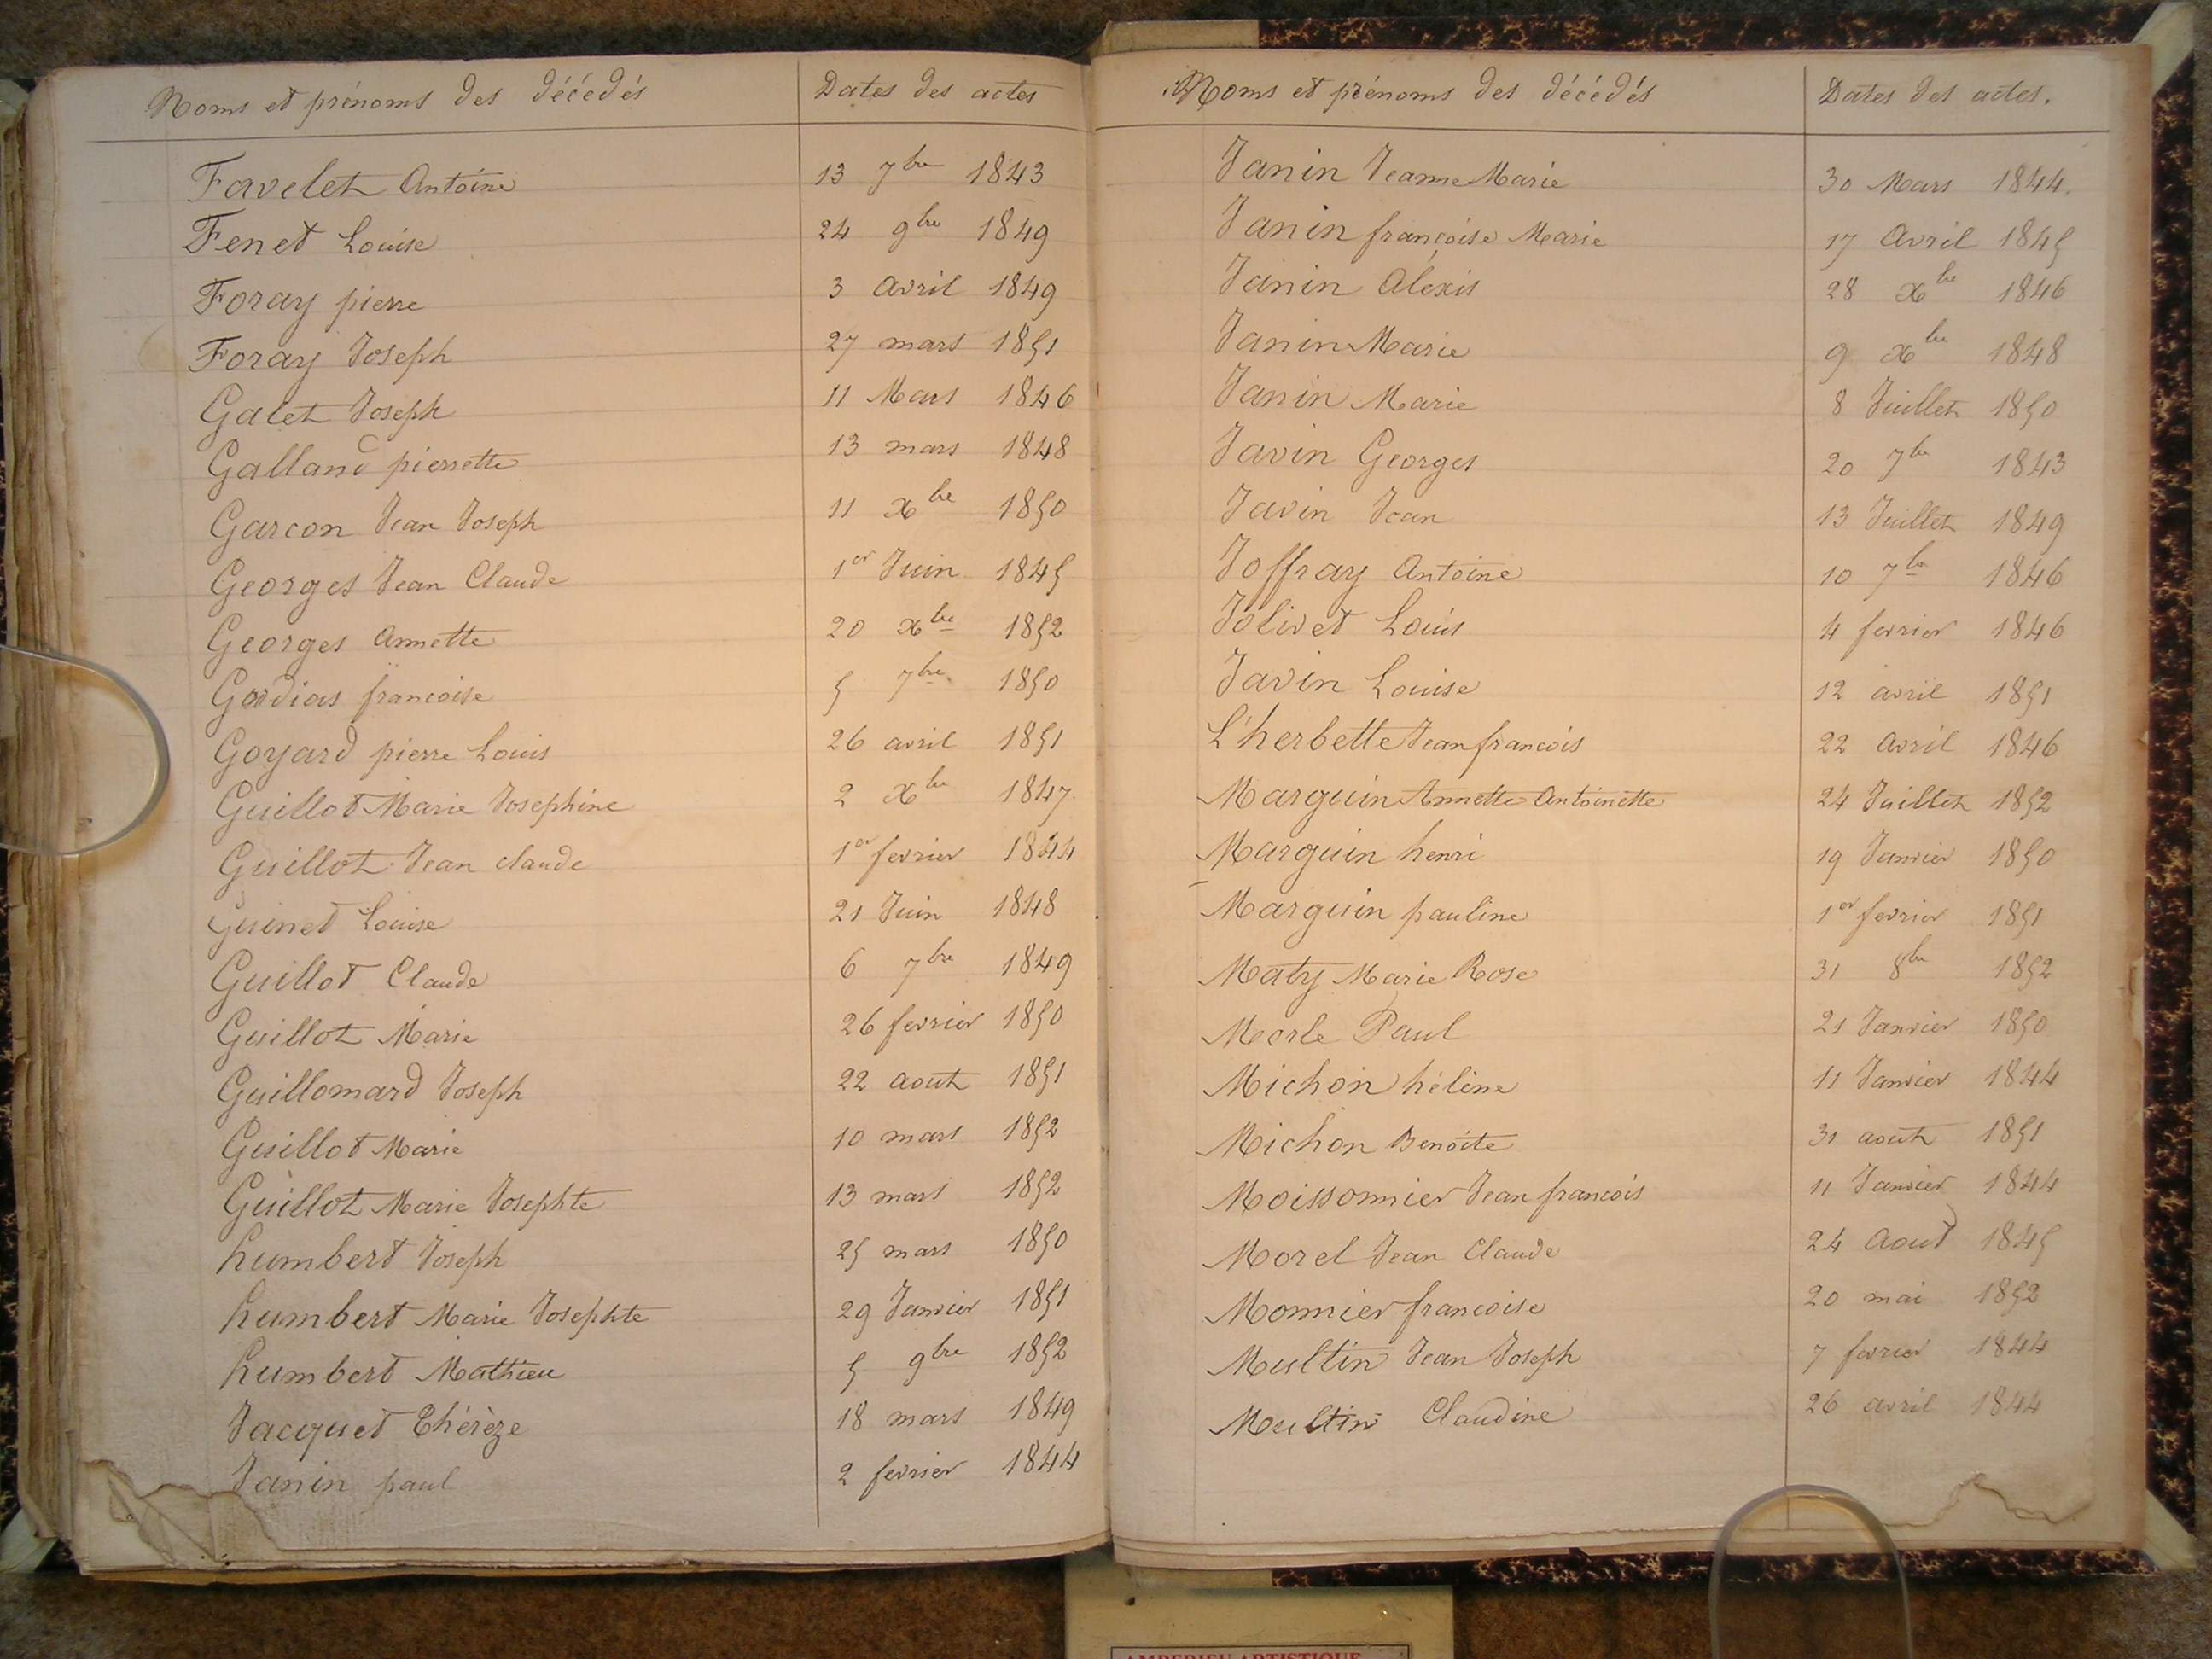 Noms et prénoms des décédés Dates des actes
Favelet Antoine 13 7bre 1843
Fenet Louise 24 9bre 1849
Foray pierre 3 Avril 1849
Foray Joseph 27 mars 1851
Galet Joseph 11 Mars 1846
Galland pierrette 13 mars 1848
Garcon Jean Joseph 11 Xbre 1850
Georges Jean Claude 1er Juin 1845
Georges Annette 20 Xbre 1852
francoise 5 7bre 1850
Goyard pierre Louis 26 avril 1851
Guillot Marie Josephine 2 Xbre 1847
Guillot Jean claude 1er fevrier 1844
Guinet Louise 21 Juin 1848
Guillot Claude 6 7bre 1849
Guillot Marie 26 fevrier 1850
Guillomard Joseph 22 aout 1851
Guillot Marie 10 mars 1852
Guillot Marie Josephte 13 mars 1852
humbert Joseph 25 mars 1850
humbert Marie Josephte 29 Janvier 1851
humbert Mathieu 5 9bre 1852
Jacquet Thérèze 18 mars 1849
Janin paul 2 fevrier 1844
Noms et prénoms des décédés Dates des actes.
Janin Jeanne Marie 30 Mars 1844.
Janin françoise Marie 17 Avril 1845
Janin Alexis 28 Xbre 1846
Janin Marie 9 Xbre 1848
Janin Marie 8 Juillet 1850
Javin Georges 20 7bre 1843
Javin Jean 13 Juillet 1849
Joffray Antoine 10 7bre 1846
Jolivet Louis 4 fevrier 1846
Javin Louise 12 avril 1851
L'herbette Jean francois 22 Avril 1846
Marguin Annette Antoinette 24 Juillet 1852
Marguin henri 19 Janvier 1850
Marguin pauline 1er fevrier 1851
Maty Marie Rose 31 8bre 1852
Merle Paul 21 Janvier 1850
Michon hélène 11 Janvier 1844
Michon Benoite 31 aout 1851
Moissonnier Jean francois 11 Janvier 1844
Morel Jean Claude 24 Aout 1845
Monnier francoise 20 mai 1852
Multin Jean Joseph 7 fevrier 1844
Multin Claudine 26 avril 1844
AMBERIEU ARTISTIQUE